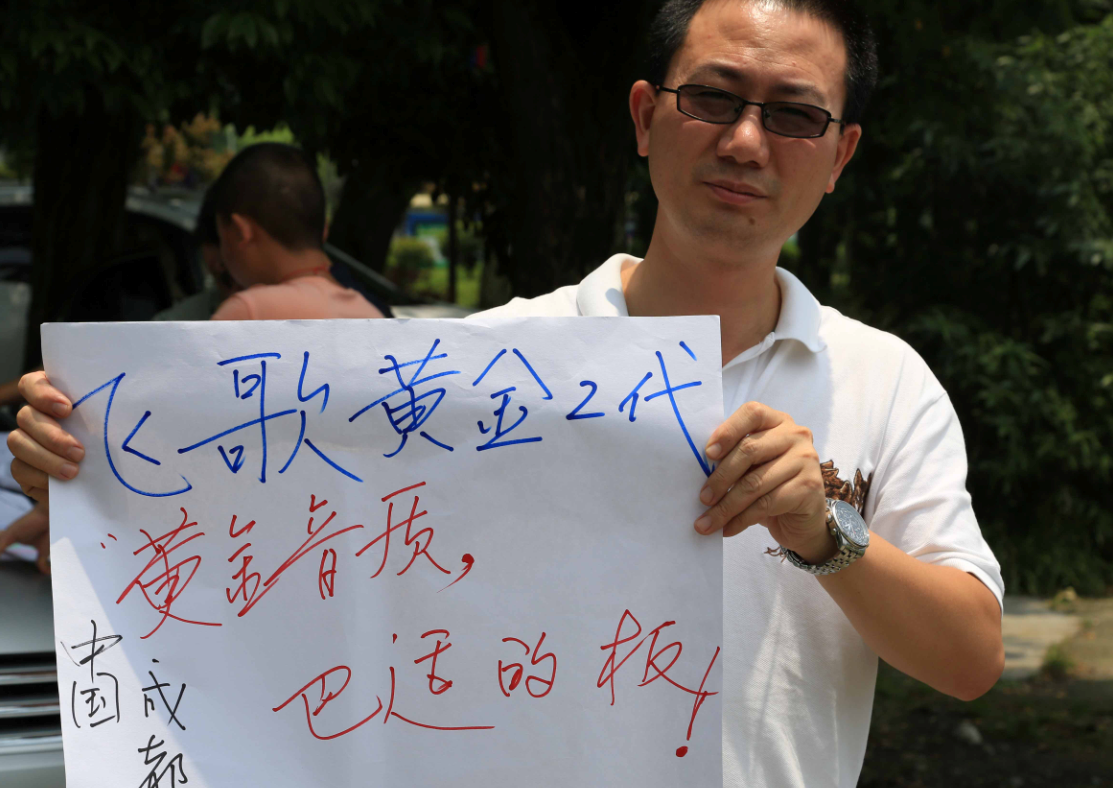 飞歌黄金2代
"黄金音质,
巴适的板!
中国
成都